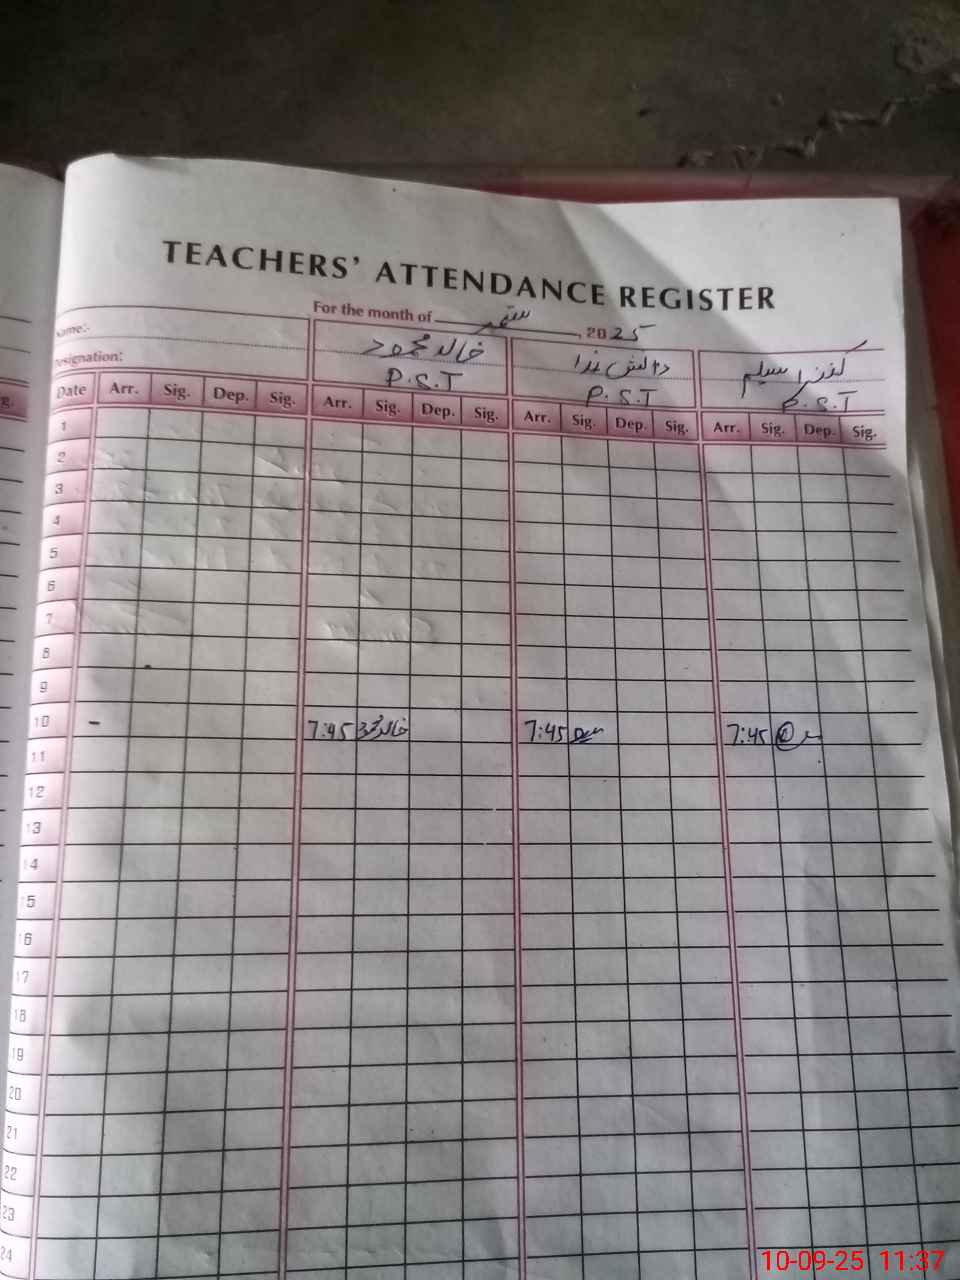 TEACHERS' ATTENDANCE REGISTER
For the month of ستمبر, 2025
Name:-
Designation:
خالد محمود
P.S.T
ندا
P.S.T
سلیم
P.S.T
Date Arr. Sig. Dep. Sig. Arr. Sig. Dep. Sig. Arr. Sig. Dep. Sig. Arr. Sig. Dep. Sig.
1
2
3
4
5
6
7
8
9
10 - 7:45 خالد محمود 7:45 7:45
11
12
13
14
15
16
17
18
19
20
21
22
23
24
10-09-25 11:37